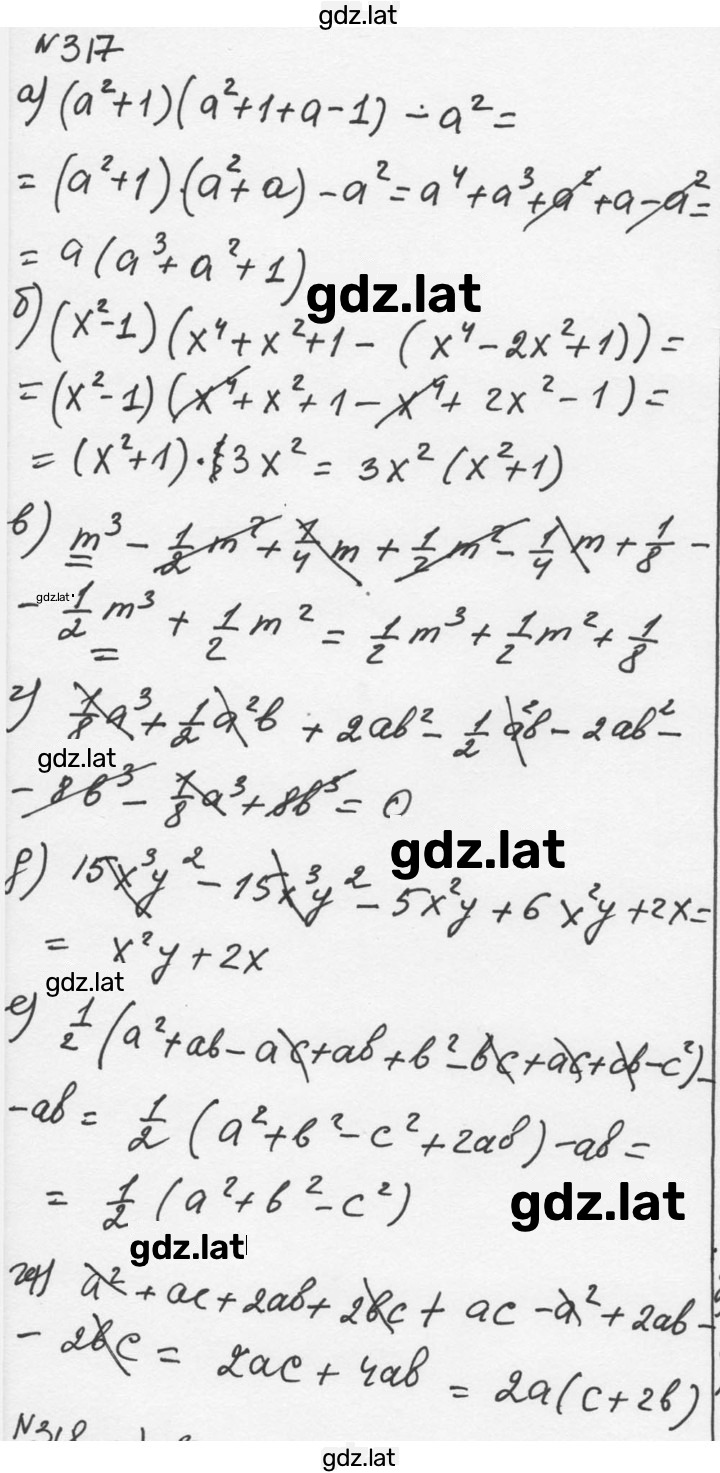 gdz.lat
N317
а) (a²+1)(a²+1+a-1) - a² =
= (a²+1)·(a²+a) - a² = a⁴+a³+a²+a-a² =
= a(a³+a²+1)
gdz.lat
б) (x²-1)(x⁴+x²+1 - (x⁴-2x²+1)) =
= (x²-1)(x⁴+x²+1-x⁴+2x²-1) =
= (x²+1)·3x² = 3x²(x²+1)
в) m³ - 1/2 m² + 1/4 m + 1/2 m² - 1/4 m + 1/8 -
gdz.lat
- 1/2 m³ + 1/2 m² = 1/2 m³ + 1/2 m² + 1/8
г) 1/8 a³ + 1/2 a²b + 2ab² - 1/2 a²b - 2ab² -
gdz.lat
- 8b³ - 1/8 a³ + 8b³ = 0
gdz.lat
д) 15x³y² - 15x³y² - 5x²y + 6x²y + 2x =
= x²y + 2x
gdz.lat
е) 1/2 (a²+ab-ac+ab+b²-bc+ac+cb-c²) -
-ab = 1/2 (a²+b²-c²+2ab) - ab =
= 1/2 (a²+b²-c²)
gdz.lat
gdz.lat
ж) a²+ac+2ab+2bc+ac-a²+2ab-
- 2bc = 2ac+4ab = 2a(c+2b)
N318
gdz.lat